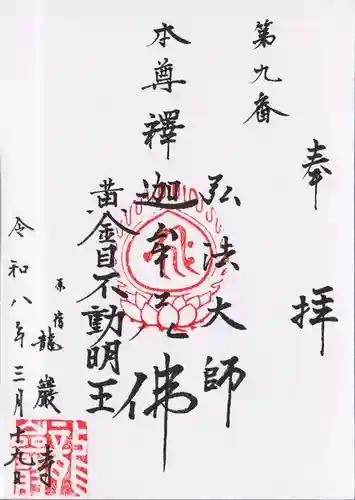 奉拝
第九番
弘法大師
本尊釋迦牟尼佛
黄金目不動明王
原宿
龍巖寺
令和八年三月十九日